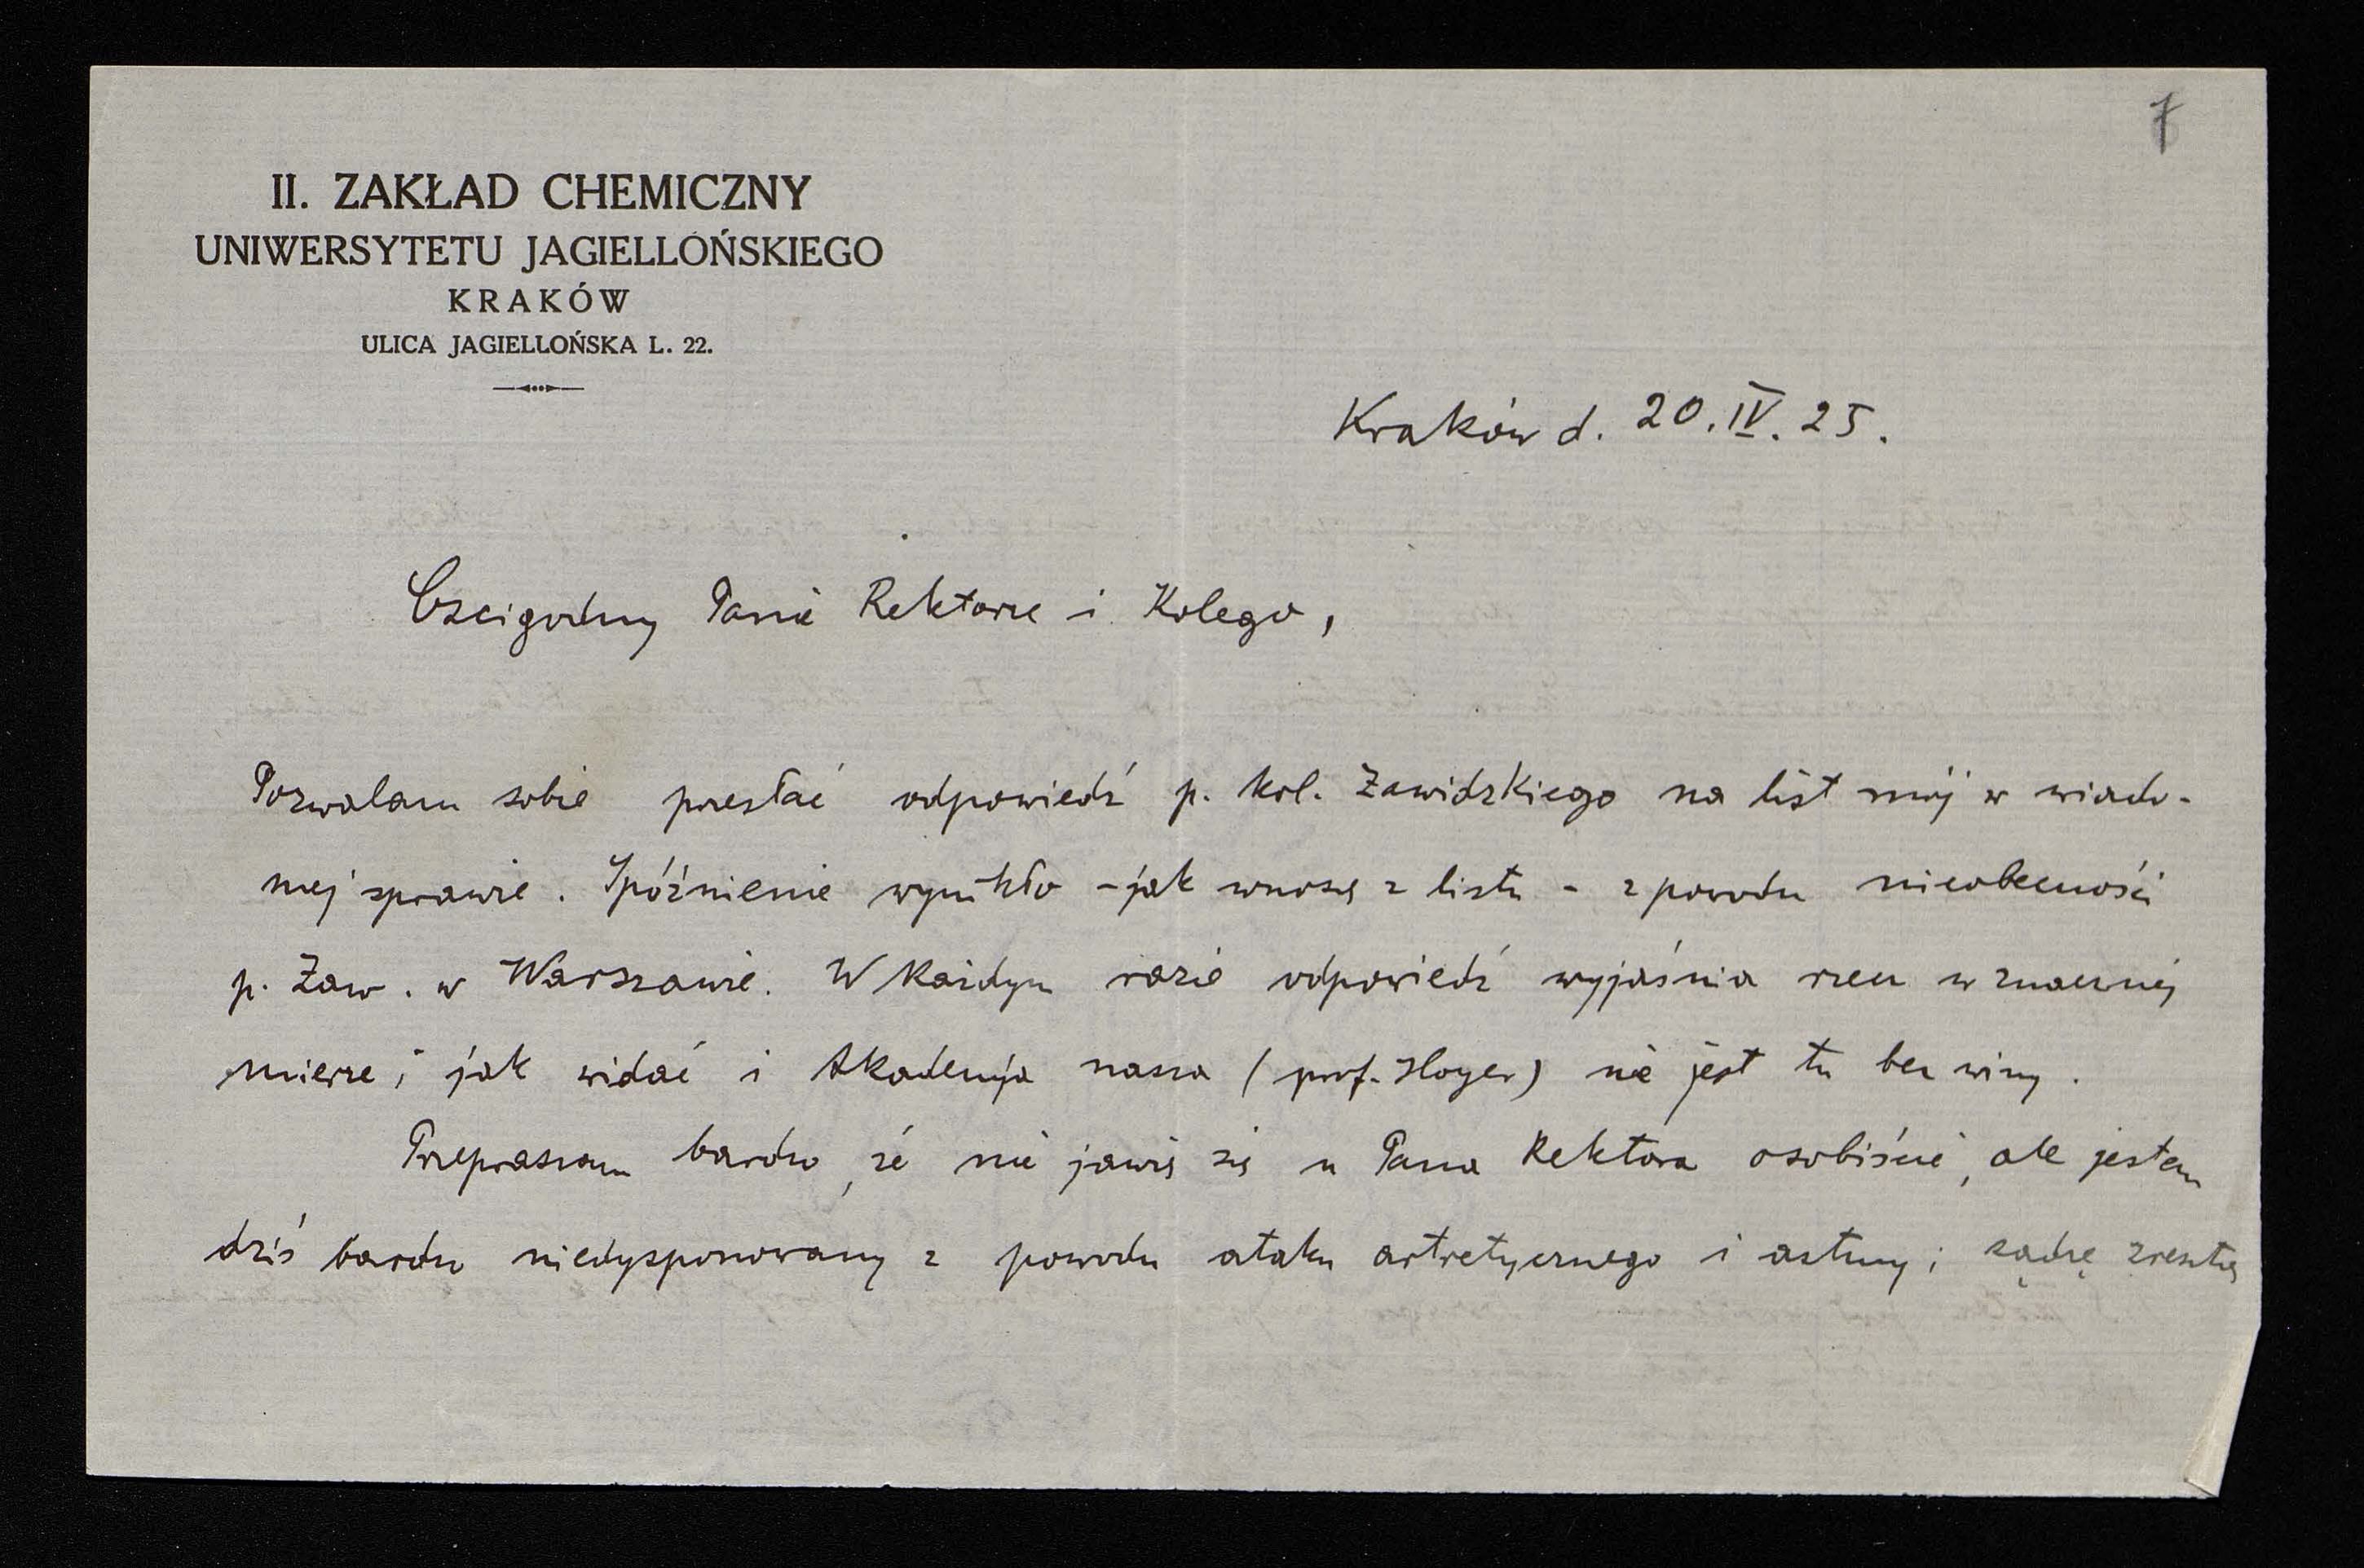 7
II. ZAKŁAD CHEMICZNY
UNIWERSYTETU JAGIELLOŃSKIEGO
KRAKÓW
ULICA JAGIELLOŃSKA L. 22.
Kraków d. 20. IV. 25.
Czcigodny Panie Rektorze i Kolego,
Pozwalam sobie przesłać odpowiedź p. kol. Zawidzkiego na list mój w wiado-
mej sprawie. Spóźnienie wynikło - jak wnoszę z listu - z powodu nieobecności
p. Zaw. w Warszawie. W każdym razie odpowiedź wyjaśnia rzecz w znacznej
mierze; jak widać i Akademja nasza (prof. Hoyer) nie jest tu bez winy.
Przepraszam bardzo, że nie jawię się u Pana Rektora osobiście, ale jestem
dziś bardzo niedysponowany z powodu ataku artretycznego i astmy; sądzę zresztą